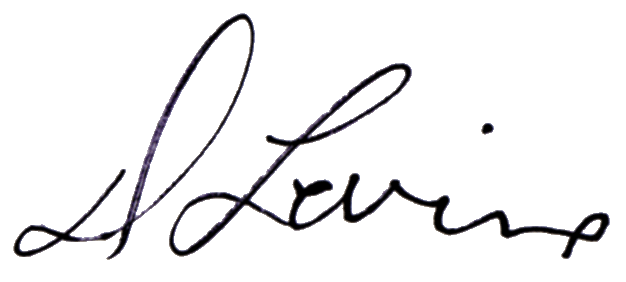 D Levine